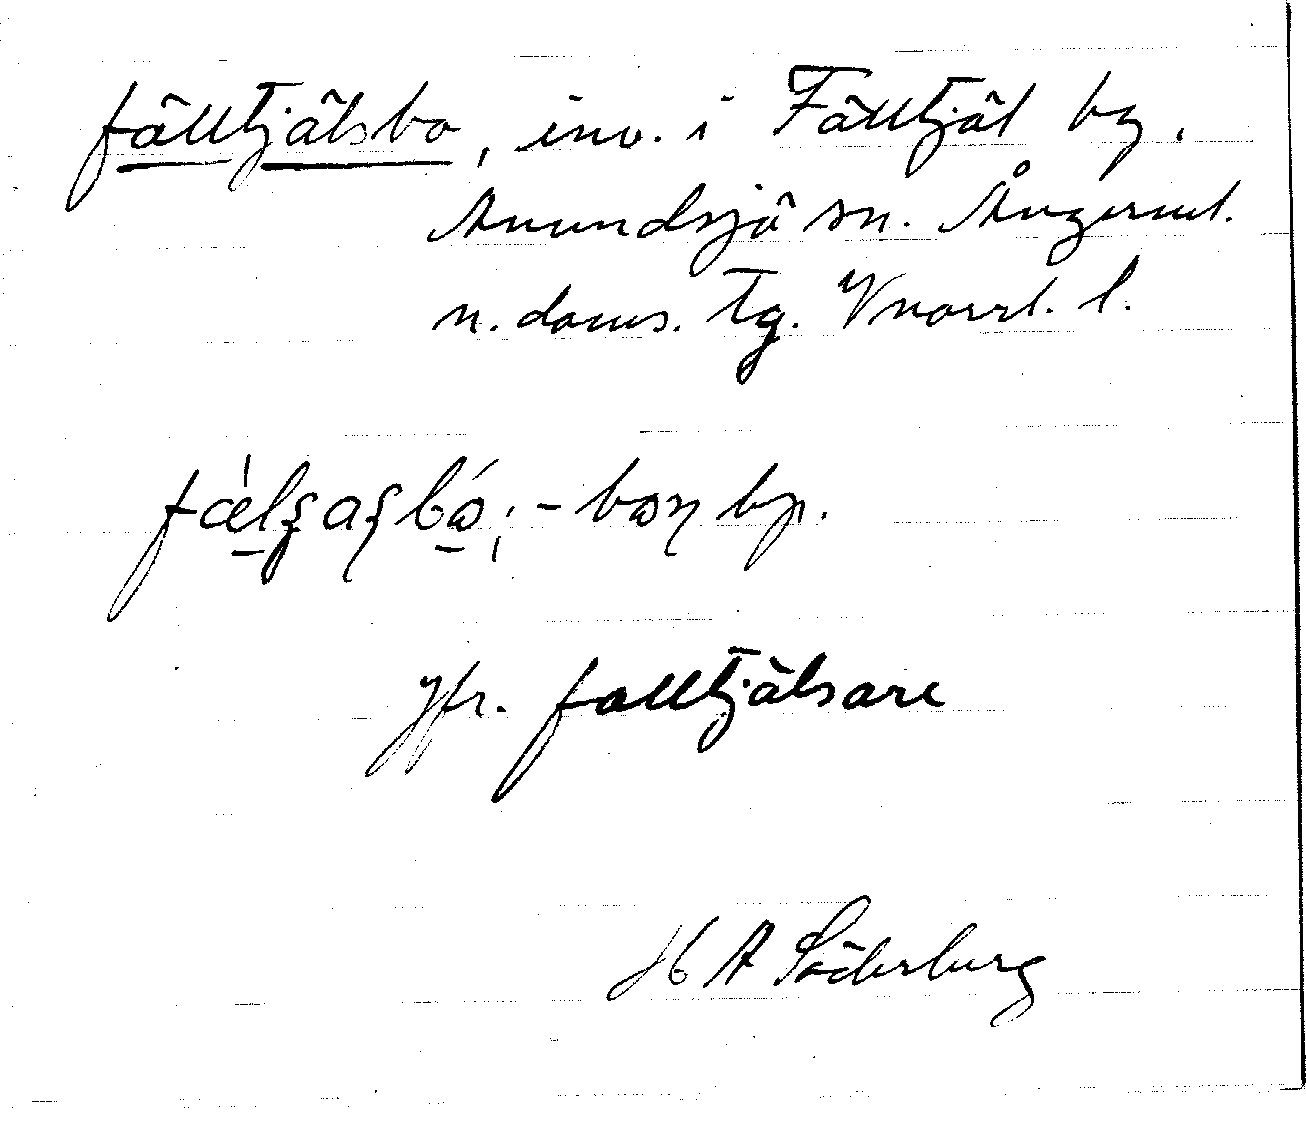 fälltjälsbo, inv. i Fälltjäl by,
Anundsjö sn. Ångerml.
n. doms. Tg. Vnorrl. l.
-boṇ bp.
Jfr. falltjälsare
H A Söderberg